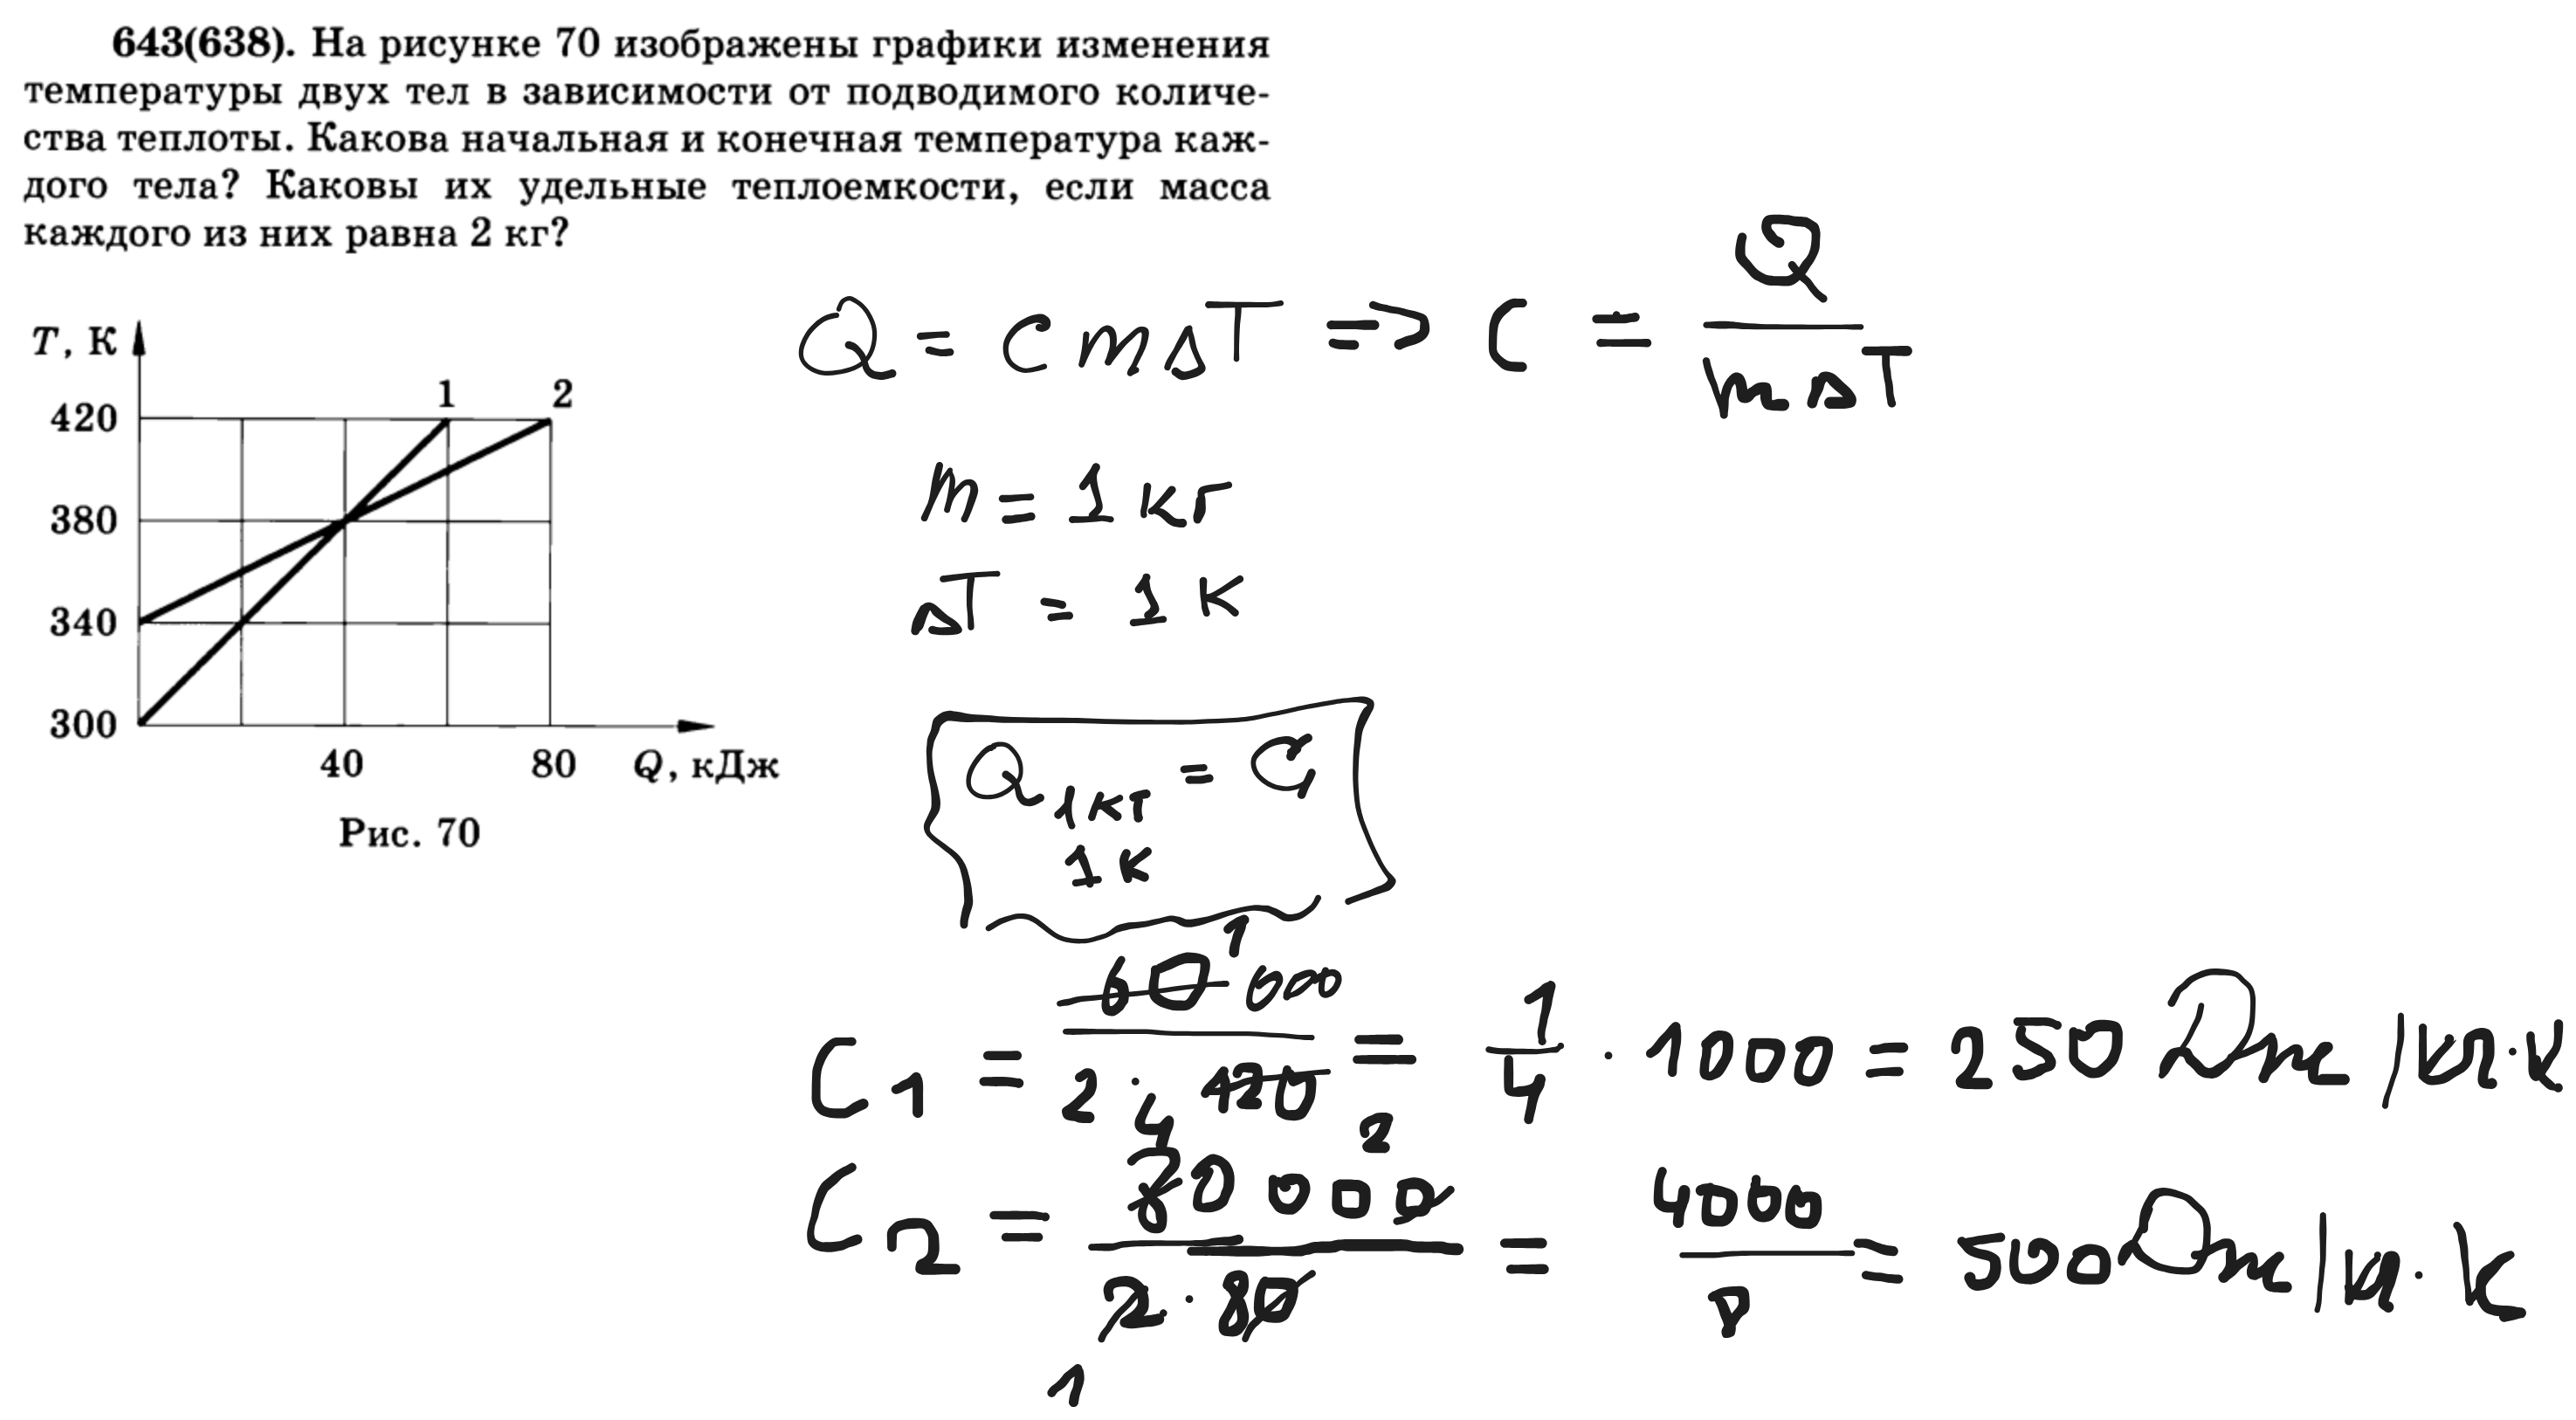 643(638). На рисунке 70 изображены графики изменения
температуры двух тел в зависимости от подводимого количе-
ства теплоты. Какова начальная и конечная температура каж-
дого тела? Каковы их удельные теплоемкости, если масса
каждого из них равна 2 кг?
T, К
1 2
420
380
340
300
40 80 Q, кДж
Рис. 70
Q = c m ΔT => C = Q / m ΔT
m = 1 кг
ΔT = 1 К
Q 1кг 1К = C
C1 = 60 000 / 2 · 120 = 1/4 · 1000 = 250 Дж/кг·К
C2 = 80 000 / 2 · 80 = 4000 / 8 = 500 Дж/кг·К